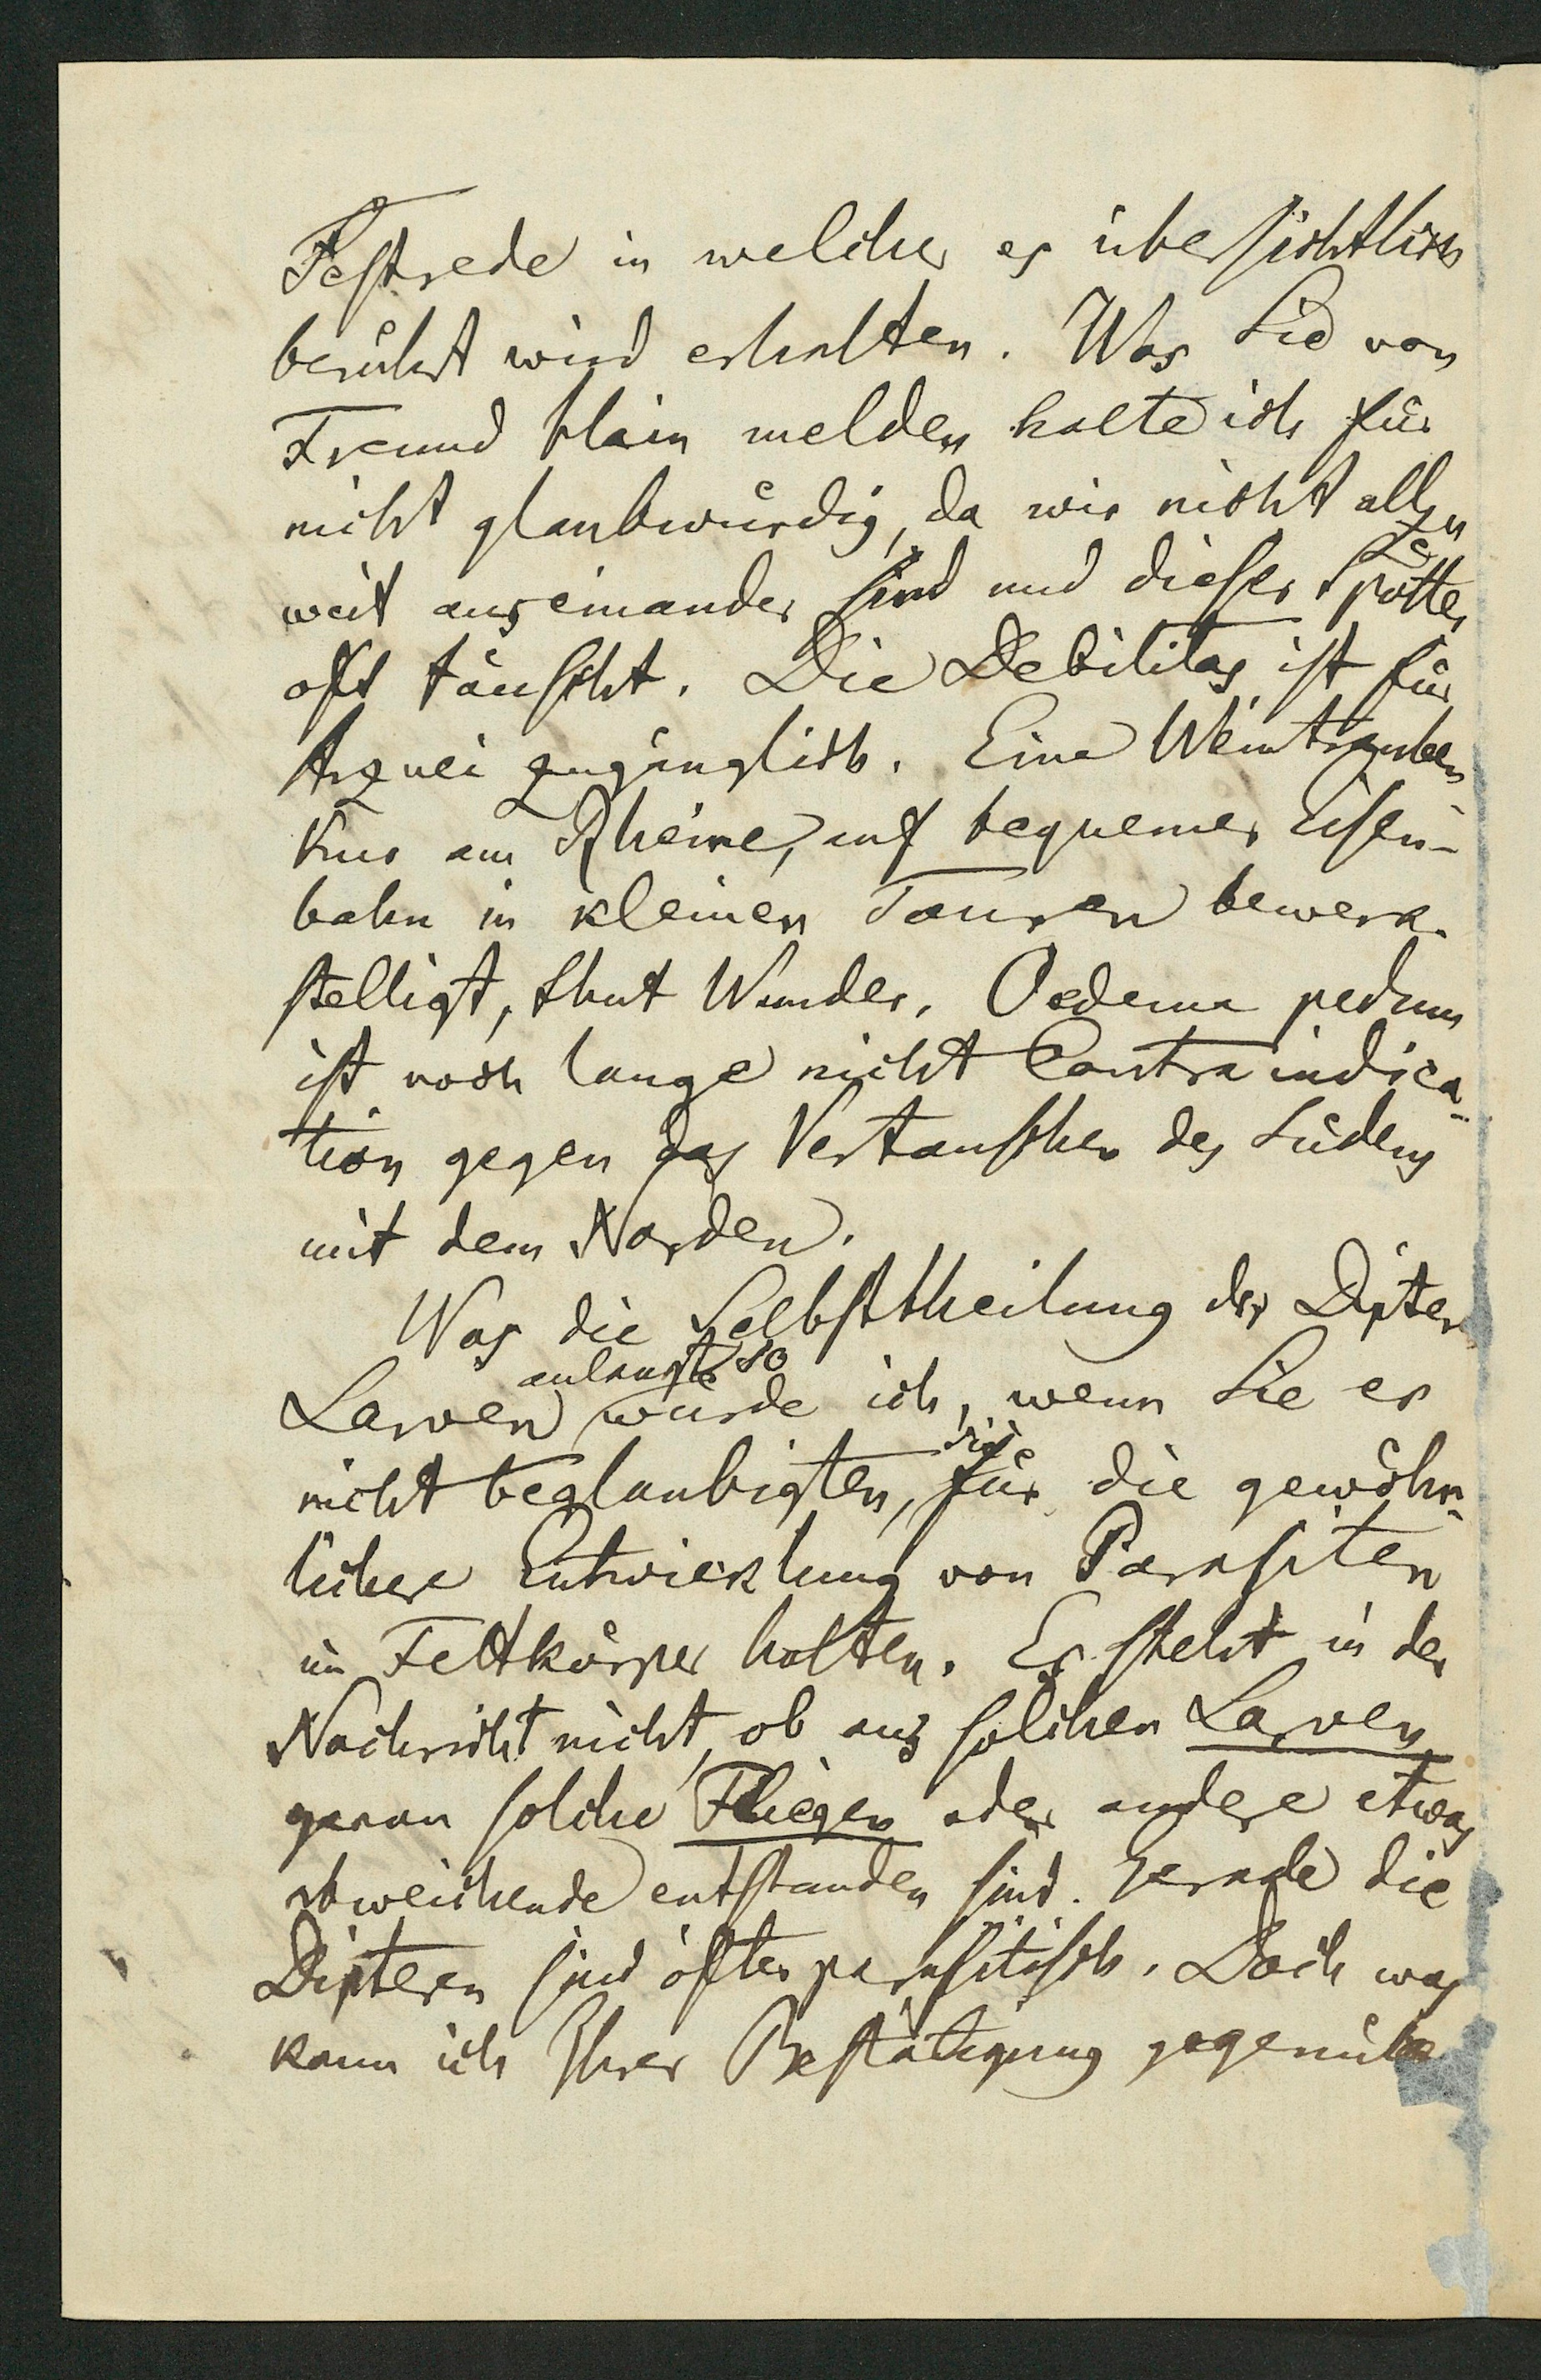 Festrede in welcher es übersichtlich
berührt wird erhalten. Was Sie von
Freund Hain melden halte ich für
nicht glaubwürdig, da wir nicht allzu
weit auseinander sind und dieser Spötter
oft täuscht. Die Debilitas ist für
Arznei zugänglich. Eine Weintrauben
Kur am Rheine, auf bequemer Eisen-
bahn in kleinen Touren bewerk-
stelligt, thut Wunder. Oedema pedum
ist noch lange nicht Contraindica-
tion gegen das Vertauschen des Südens
mit dem Norden.
Was die Selbsttheilung der Dipter
Larven anlangt so würde ich, wenn Sie es
nicht beglaubigten, sie für die gewöhn-
liche Entwicklung von Parasiten
im Fettkörper halten. Es steht in der
Nachricht nicht, ob aus solchen Larven
genau solche Fliegen oder andere etwas
abweichende entstanden sind. Gerade die
Diptern sind öfter parasitisch. Doch was
kann ich Ihrer Bestätigung gegenüber